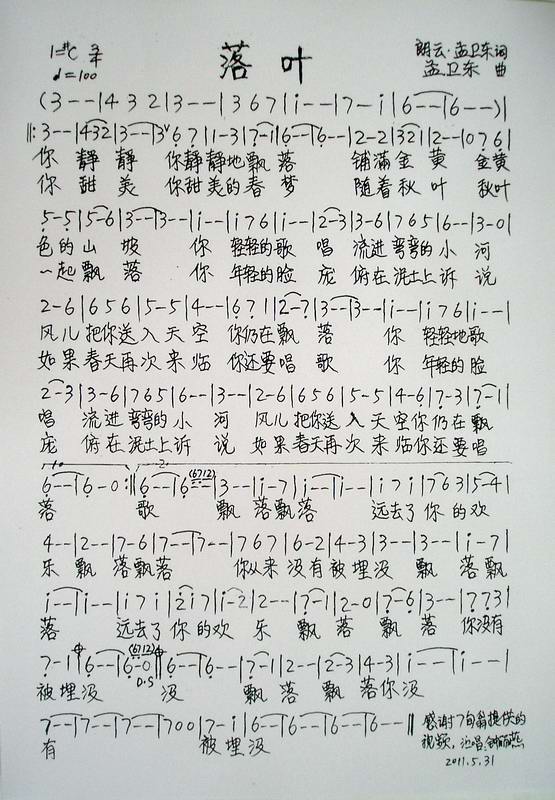 1=#C 3/4
落叶
朗云·孟卫东词
♩=100
孟卫东 曲
(3--|432|3--|367|i--|7-i|6--|6--)|
‖:3--|432|3--|3 67|1-3|7-i|6--|6--|2-2|321|2--|0 76|
你静静 你静静地飘落 铺满金黄 金黄
你甜美 你甜美的春梦 随着秋叶 秋叶
5-5|5-6|3--|3--|i--|i76|i--|2-3|3-6|765|6--|3-0|
色的山坡 你轻轻的歌唱 流进弯弯的小河
一起飘落 你年轻的脸庞 俯在泥土上诉说
2-6|656|5-5|4--|671|2-7|3--|3--|i--|i76|i--|
风儿把你送入天空 你仍在飘落 你轻轻地歌
如果春天再次来临 你还要唱歌 你年轻的脸
2-3|3-6|765|6--|3--|2-6|656|5-5|4-6|7-3|7-1|
唱 流进弯弯的小河 风儿把你送入天空你仍在飘
庞 俯在泥土上诉说 如果春天再次来临你还要唱
6--|6-0:‖6--|6--(6712)|3--|i-7|i--|i--|i7i|763|5-4|
落 歌 飘落飘落 远去了你的欢
4--|2--|7-6|7--|7--|767|6-2|4-3|3--|3--|i-7|
乐 飘落飘落 你从来没有被埋没 飘落飘
i--|i--|i7i|2i7|i-2|2--|7-1|2-0|7-6|3--|773|
落 远去了你的欢乐 飘落飘落 你没有
7-1|6--|6-0(6712)‖6--|6--|7-1|2--|2-3|4-3|i--|i--|
D.S
被埋没 没 飘落飘落你没
7--|7--|7--|700|7-i|6--|6--|6--|6--‖
有 被埋没
感谢7旬翁提供的
视频,
2011.5.31